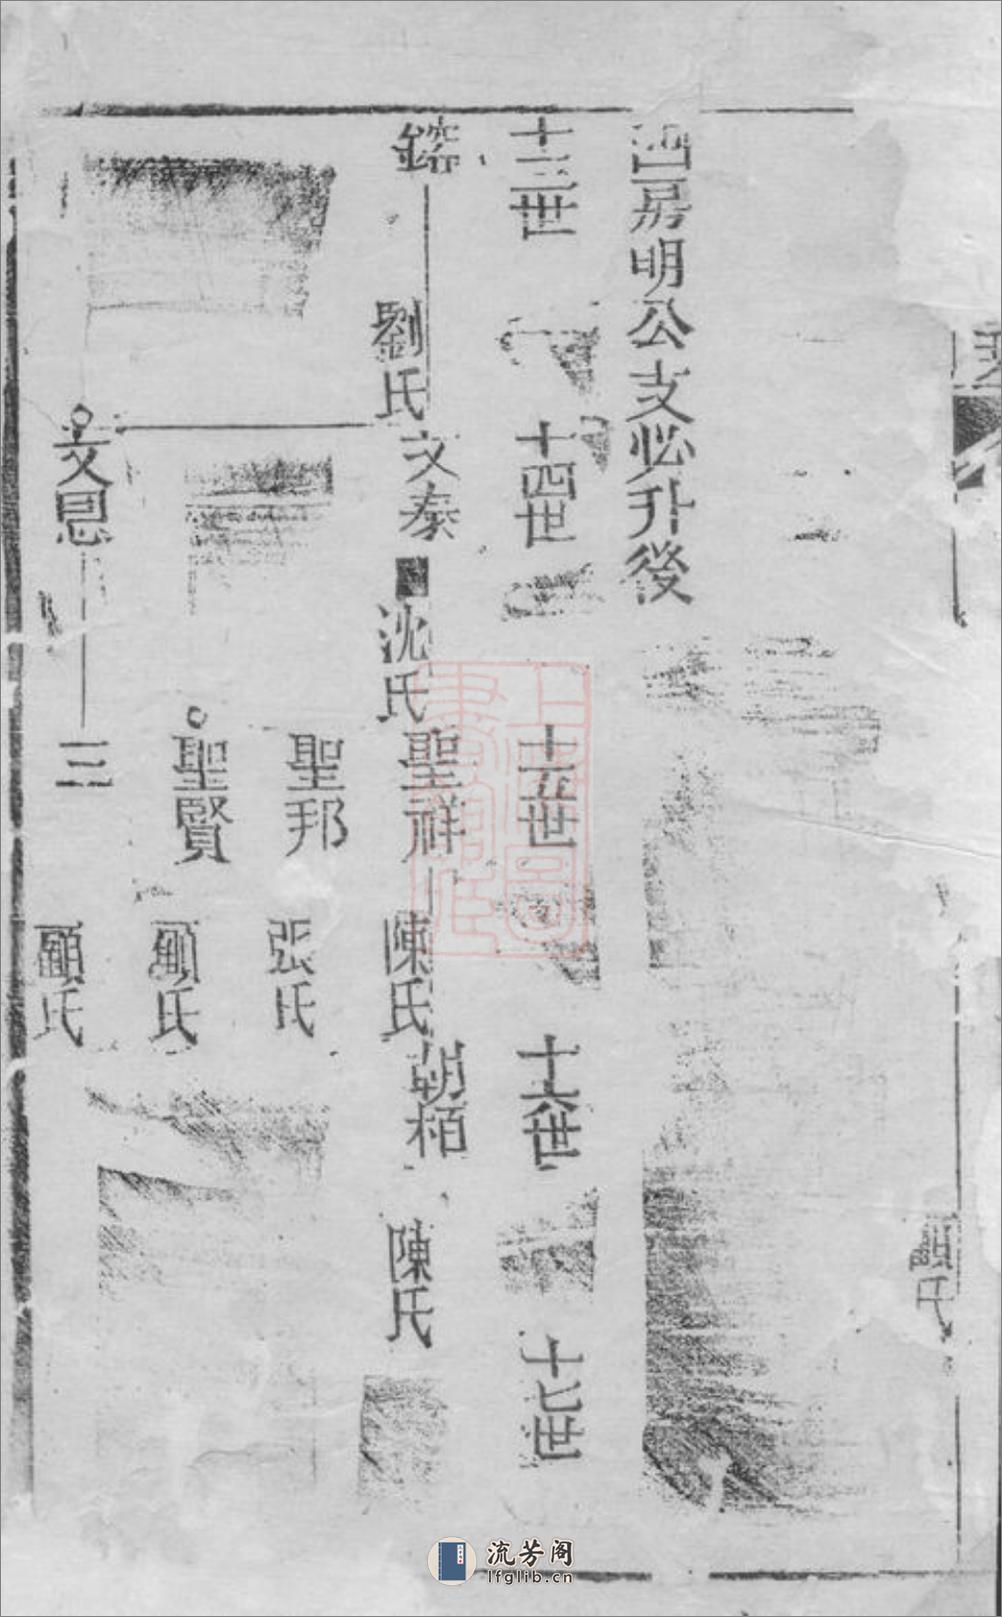 顧氏
四房明公支必升後
十三世
十四世
十五世
十六世
十七世
鎔
劉氏
文泰
沈氏
聖祥
陳氏
朝栢
陳氏
聖邦
張氏
聖賢
顧氏
文恩
三
顧氏
上海圖書館藏
流芳阁
lfglib.cn